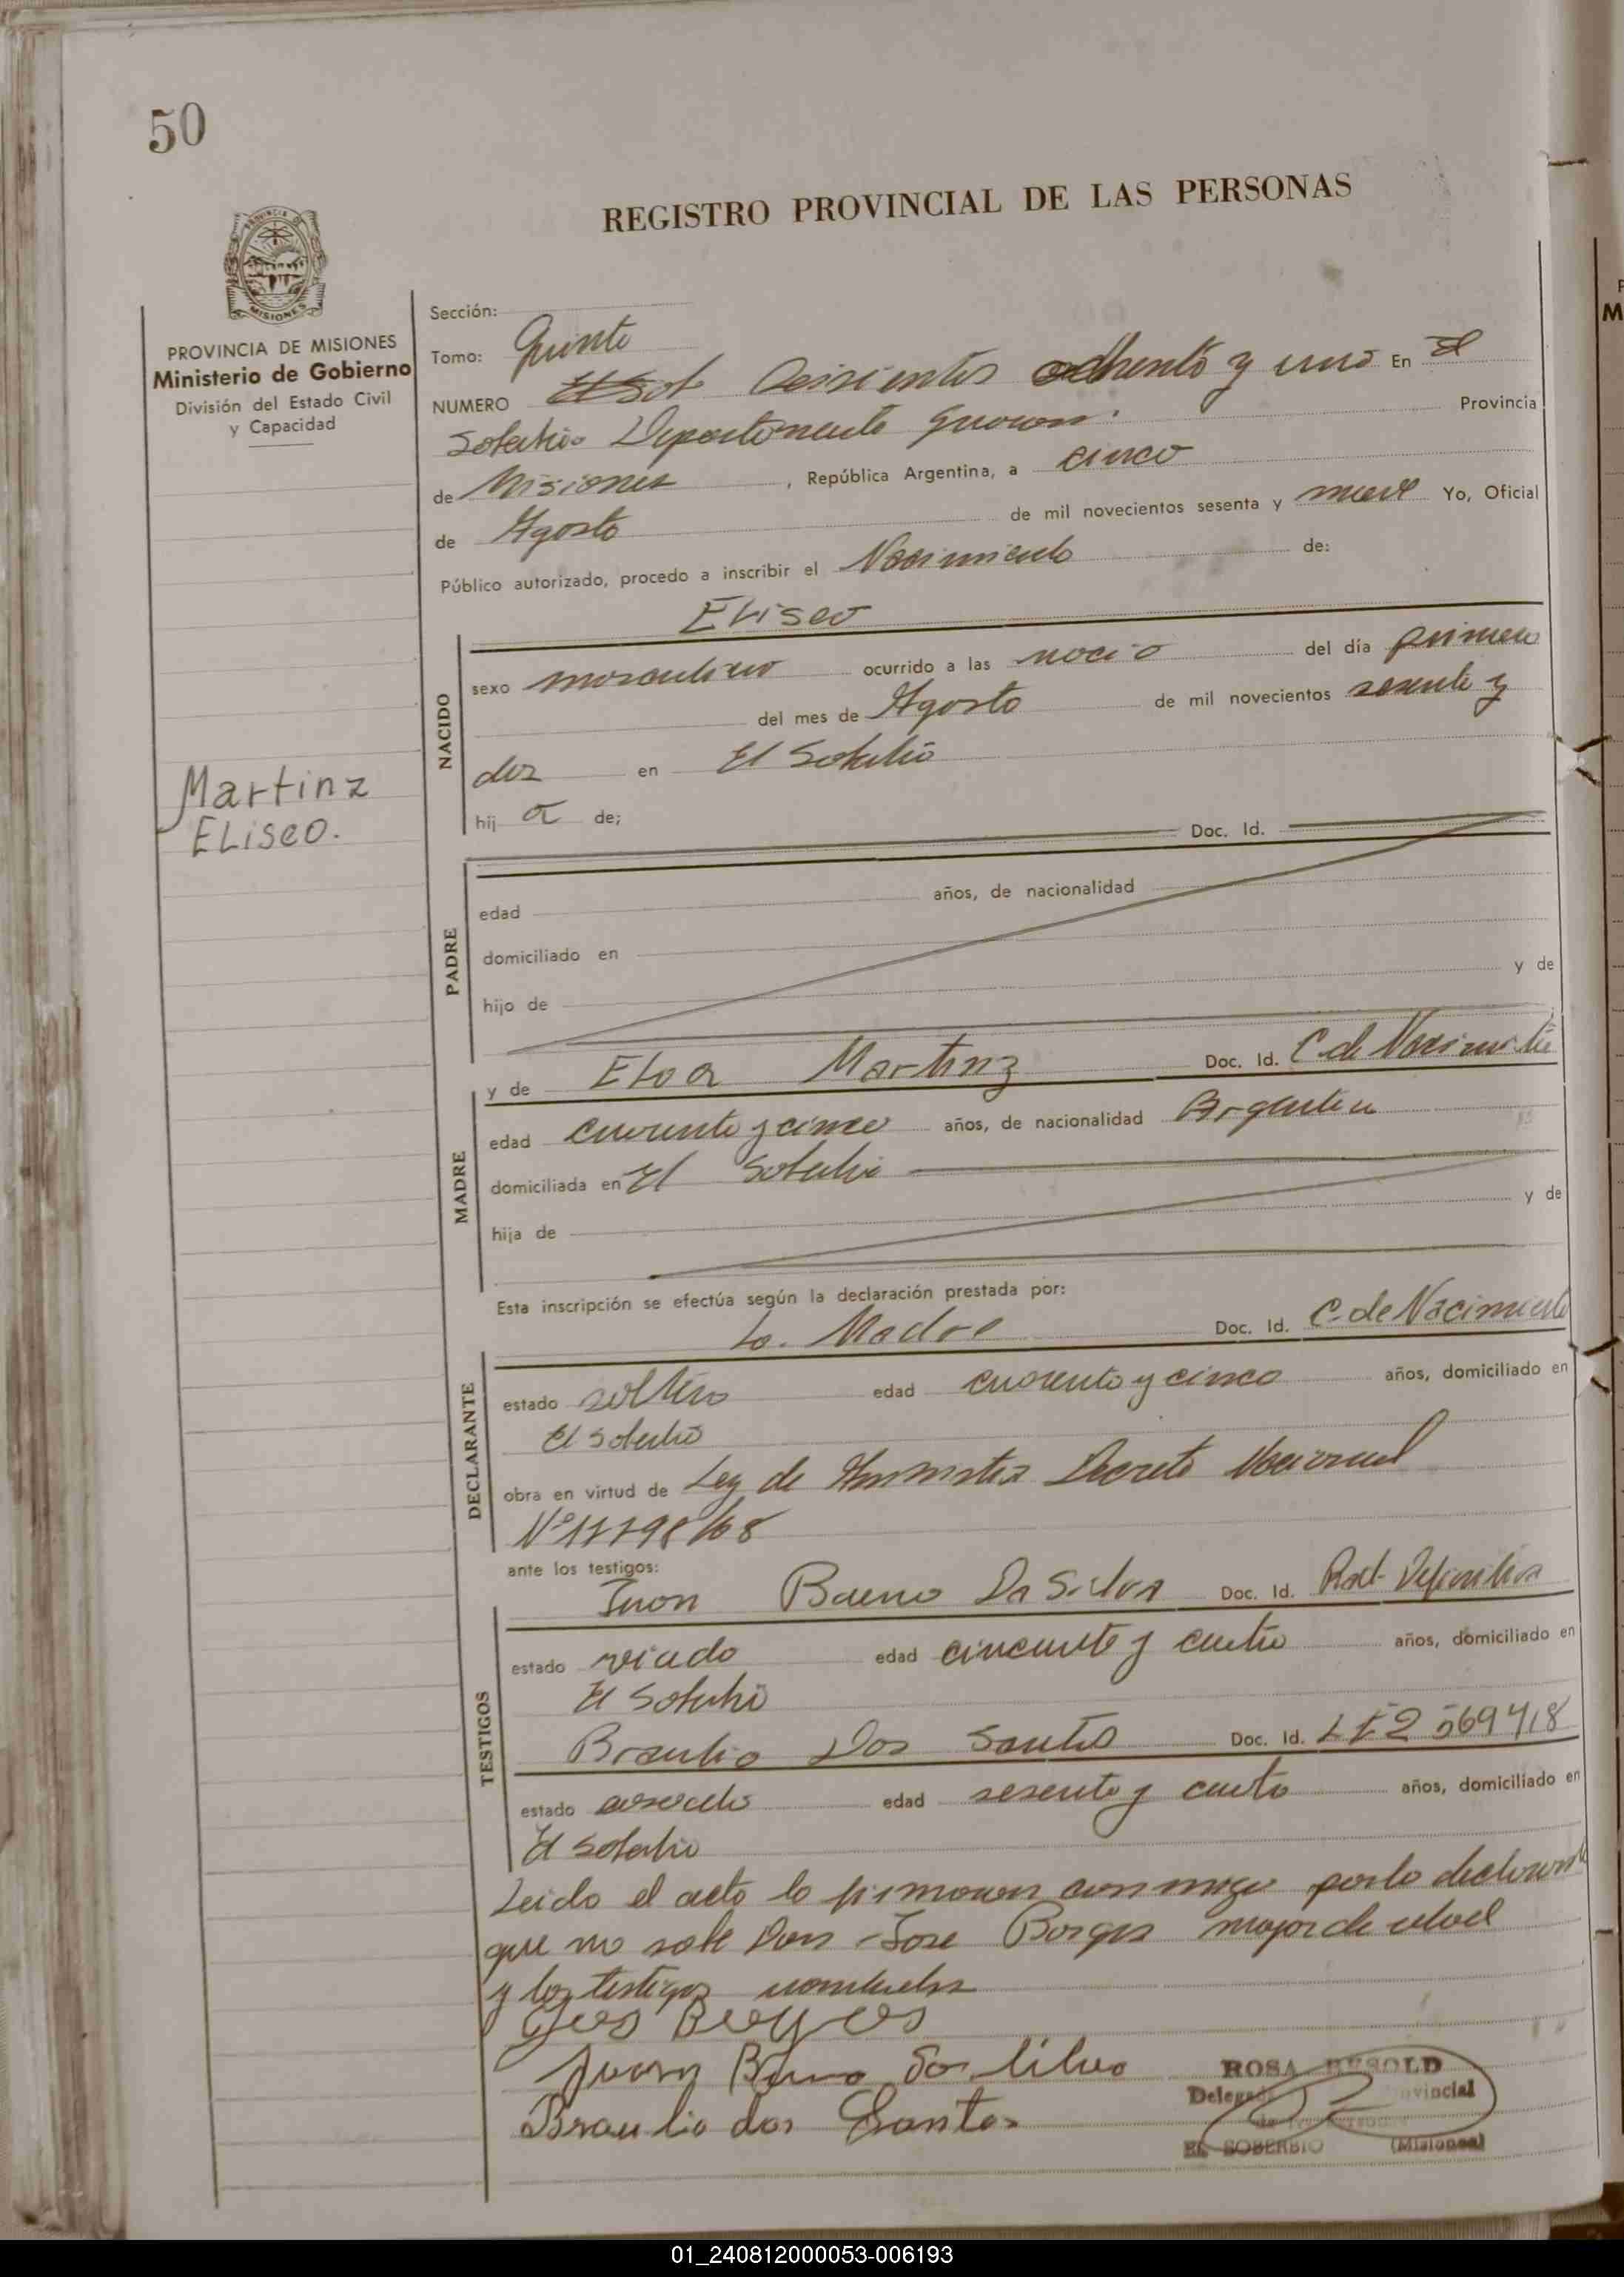 50
REGISTRO PROVINCIAL DE LAS PERSONAS
PROVINCIA DE
MISIONES
PROVINCIA DE MISIONES
Ministerio de Gobierno
División del Estado Civil
y Capacidad
Martinz
ELiseo.
Sección:
Tomo: Quinto
NUMERO Seiscientos ochenta y uno En El
Soberbio Departamento Guarani. Provincia
de Misiones, República Argentina, a cinco
de Agosto de mil novecientos sesenta y nueve Yo, Oficial
Público autorizado, procedo a inscribir el Nacimiento de:
ELiseo
NACIDO
sexo masculino ocurrido a las del día primero
del mes de Agosto de mil novecientos sesenta y
dos en El Soberbio
hij o de;
Doc. Id.
PADRE
edad años, de nacionalidad
domiciliado en
hijo de y de
y de ELoa Martinz Doc. Id. C. de Nacimiento
MADRE
edad cuarenta y cinco años, de nacionalidad Argentina
domiciliada en El Soberbio
hija de y de
Esta inscripción se efectúa según la declaración prestada por:
La Madre Doc. Id. C. de Nacimiento
DECLARANTE
estado soltera edad cuarenta y cinco años, domiciliado en
El Soberbio
obra en virtud de Ley de Amnistia Decreto Nacional
Nº 17798/68
ante los testigos:
Juan Bueno Da Silva Doc. Id.
TESTIGOS
estado viudo edad cincuenta y cuatro años, domiciliado en
El Soberbio
Braulio Dos Santos Doc. Id. 2 569 418
estado casado edad sesenta y cuatro años, domiciliado en
El Soberbio
Leido el acta la firmaron conmigo por la declarante
que no sabe Don Jose Borges mayor de edad
y los testigos nombrados
Juan Bueno Da Silva
Braulio dos Santos
ROSA RESOLD
Delegada Provincial
EL SOBERBIO (Misiones)
01_240812000053-006193